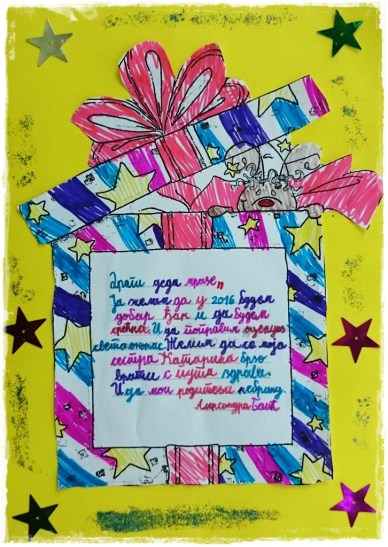 Драги деда мразе,,
Ја желим да у 2016 будем
добар ђак и да будем
вредна. И да поправим оцену из
света око нас. Желим да се моја
сестра Катарина брзо
врати с пута здрава.
И да моји родитељи не брину.
Александра